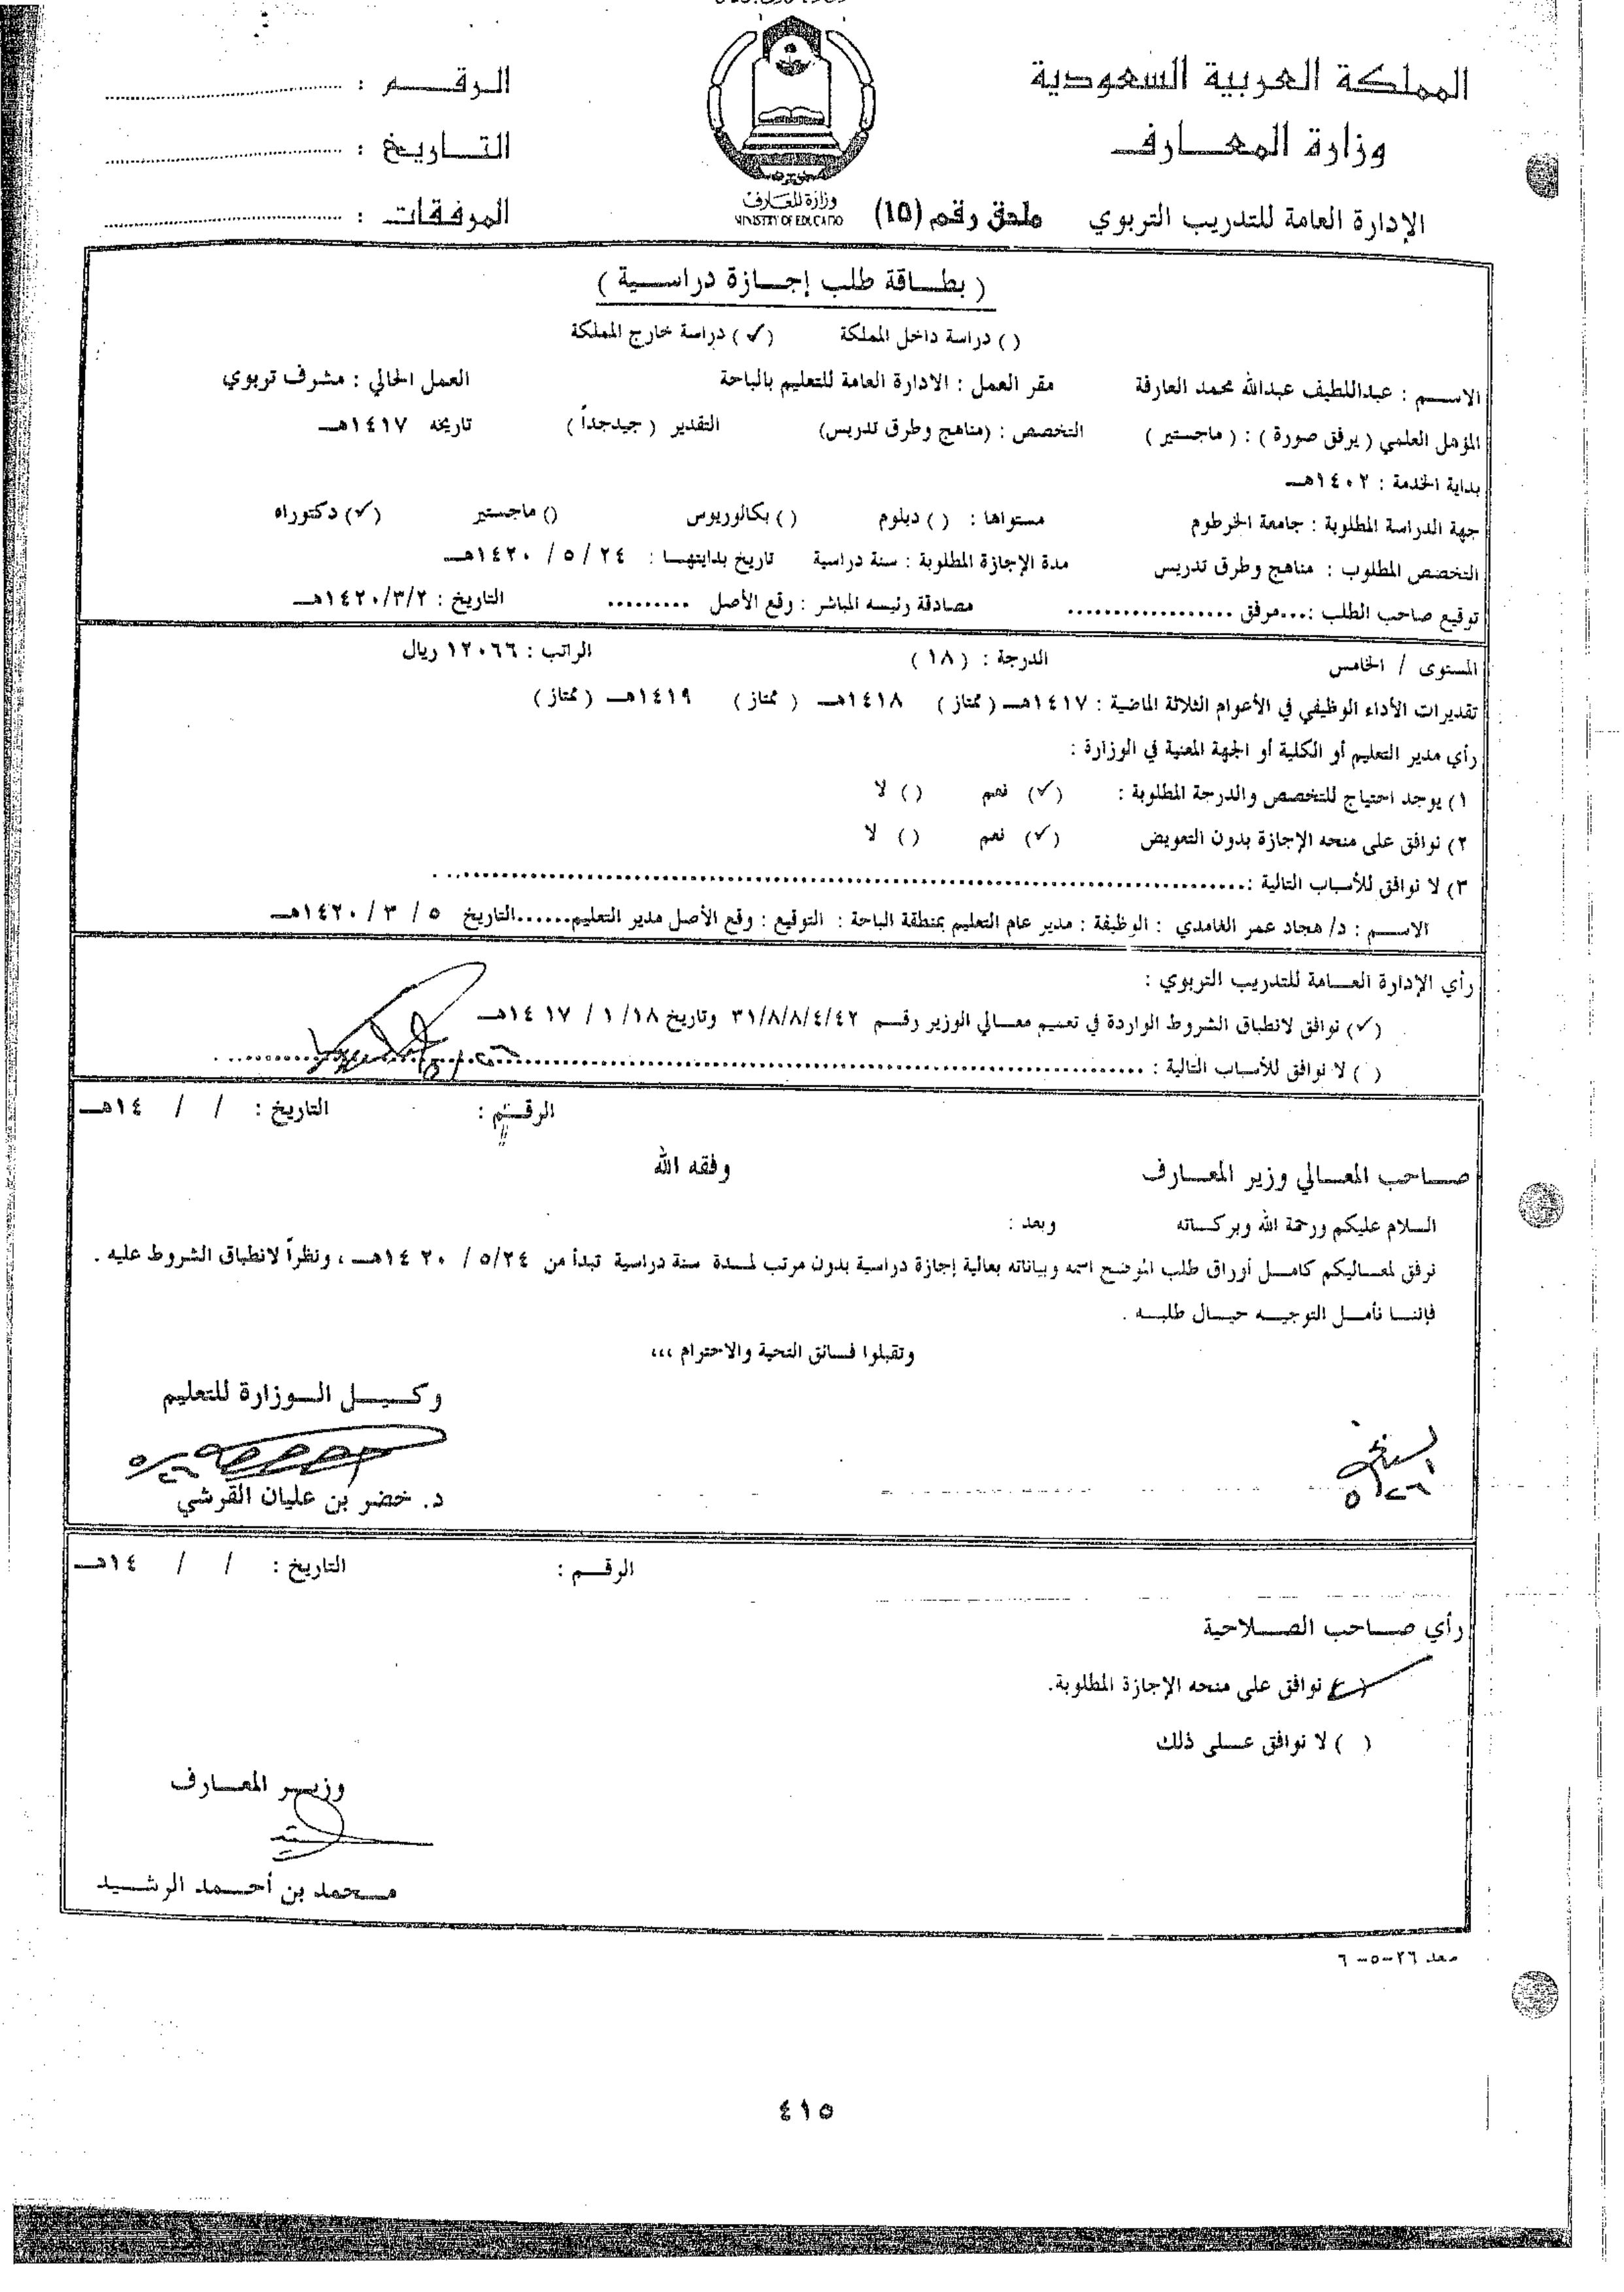 المملكة العربية السعودية
وزارة المعـــارف
الإدارة العامة للتدريب التربوي
ملحق رقم (١٥)
وزارة المعارف
MINISTRY OF EDUCATIO
الرقـــم : ........................
التـــاريخ : ........................
الموفقات : ........................
( بطـــاقة طلب إجـــازة دراســـية )
( ) دراسة داخل المملكة (✓) دراسة خارج المملكة
الاســـم : عبداللطيف عبدالله محمد العارفة مقر العمل : الادارة العامة للتعليم بالباحة العمل الحالي : مشرف تربوي
المؤهل العلمي ( يرفق صورة ) : ( ماجستير ) التخصص : (مناهج وطرق تدريس) التقدير ( جيدجداً ) تاريخه ١٤١٧هـــ
بداية الخدمة : ١٤٠٢هـــ
جهة الدراسة المطلوبة : جامعة الخرطوم مستواها : ( ) دبلوم ( ) بكالوريوس ( ) ماجستير (✓) دكتوراه
التخصص المطلوب : مناهج وطرق تدريس مدة الإجازة المطلوبة : سنة دراسية تاريخ بدايتهـــا : ٢٤ / ٥ / ١٤٢٠هـــ
توقيع صاحب الطلب :...مرفق .................. مصادقة رئيسه المباشر : وقع الأصل ......... التاريخ : ١٤٢٠/٣/٢هـــ
المستوى / الخامس الدرجة : ( ١٨ ) الراتب : ١٢٠٦٦ ريال
تقديرات الأداء الوظيفي في الأعوام الثلاثة الماضية : ١٤١٧هـــ ( ممتاز ) ١٤١٨هـــ ( ممتاز ) ١٤١٩هـــ ( ممتاز )
رأي مدير التعليم أو الكلية أو الجهة المعنية في الوزارة :
١) يوجد احتياج للتخصص والدرجة المطلوبة : (✓) نعم ( ) لا
٢) نوافق على منحه الإجازة بدون التعويض (✓) نعم ( ) لا
٣) لا نوافق للأسباب التالية :........................
الاســـم : د/ هجاد عمر الغامدي : الوظيفة : مدير عام التعليم بمنطقة الباحة : التوقيع : وقع الأصل مدير التعليم......التاريخ ٥ / ٣ / ١٤٢٠هـــ
رأي الإدارة العـــامة للتدريب التربوي :
(✓) نوافق لانطباق الشروط الواردة في تعميم معـــالي الوزير رقـــم ٣١/٨/٨/٤/٤٢ وتاريخ ١٨/ ١ / ١٤١٧هـــ
( ) لا نوافق للأسباب التالية : ........................
الرقـــم : التاريخ : / / ١٤هـــ
صـــاحب المعـــالي وزير المعـــارف وفقه الله
السلام عليكم ورحمة الله وبركـــاته وبعد :
نرفق لمعـــاليكم كامـــل أوراق طلب الموضح اسمه وبياناته بعالية إجازة دراسية بدون مرتب لمـــدة سنة دراسية تبدأ من ٥/٢٤ / ١٤٢٠هـــ ، ونظراً لانطباق الشروط عليه .
فإننـــا نأمـــل التوجيـــه حيـــال طلبـــه .
وتقبلوا فـــائق التحية والاحترام ،،،
وكـــيـــل الـــوزارة للتعليم
د. خضر بن عليان القرشي
الرقـــم : التاريخ : / / ١٤هـــ
رأي صـــاحب الصـــلاحية
(✓) نوافق على منحه الإجازة المطلوبة.
( ) لا نوافق عـــلى ذلك
وزيـــر المعـــارف
مـــحمد بن أحـــمد الرشـــيد
معد ٢٦-٥-٦
٤١٥